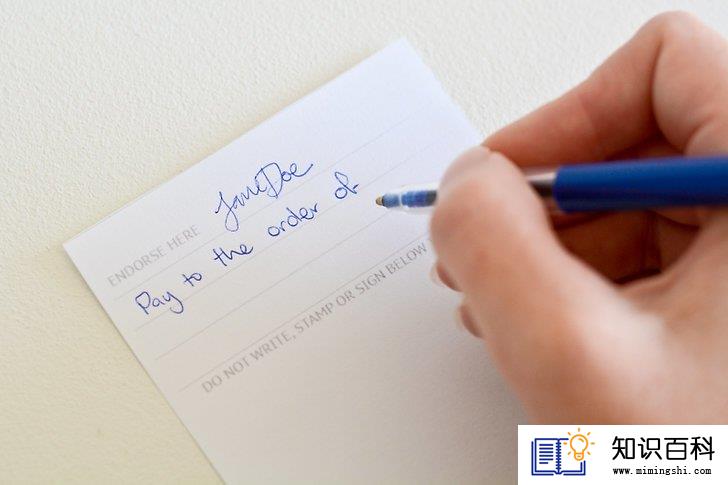 Jane Doe
ENDORSE HERE
Pay to the order of
DO NOT WRITE, STAMP OR SIGN BELOW
知识百科
www.mimingshi.com